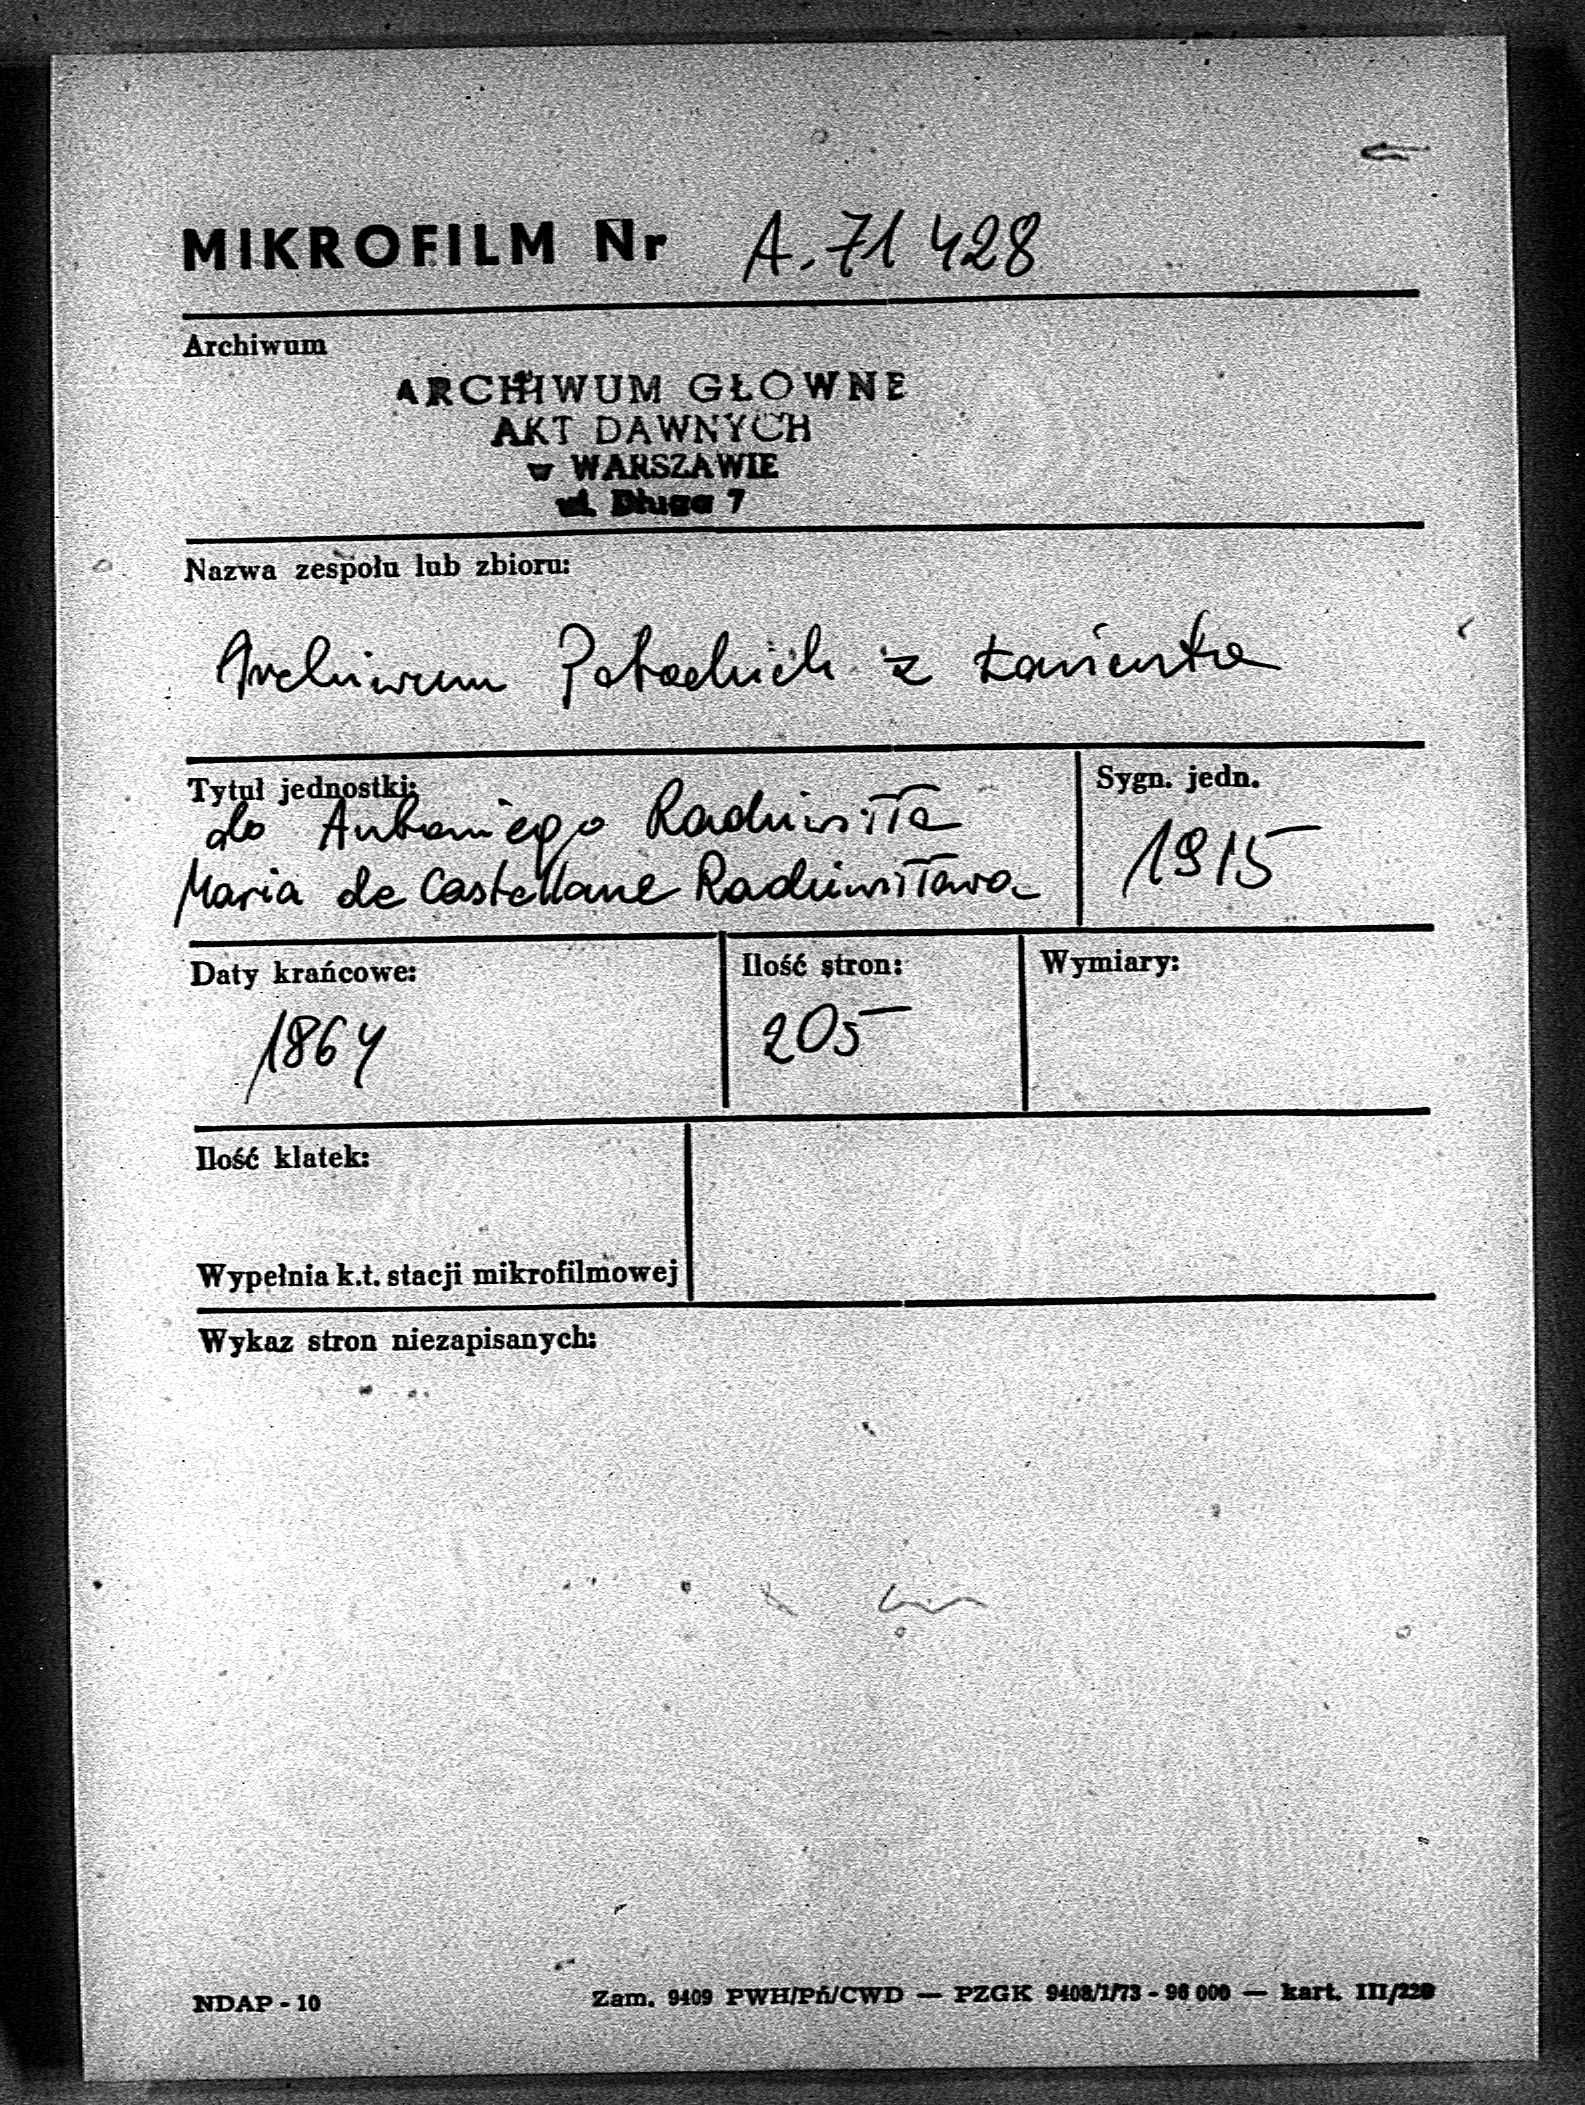 MIKROFILM Nr A.71 428
Archiwum
ARCHIWUM GŁÓWNE
AKT DAWNYCH
w WARSZAWIE
ul. Długa 7
Nazwa zespołu lub zbioru:
Archiwum Potockich z Łańcuta
Tytuł jednostki:
do Antoniego Radziwiłła
Maria de Castellane Radziwiłłowa
Sygn. jedn.
1915
Daty krańcowe:
1864
Ilość stron:
205
Wymiary:
Ilość klatek:
Wypełnia k.t. stacji mikrofilmowej
Wykaz stron niezapisanych:
NDAP - 10
Zam. 9409 PWH/Pń/CWD — PZGK 9408/1/73 - 96 000 — kart. III/220